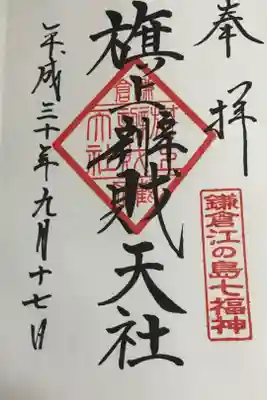 奉拝
鎌倉江の島七福神
旗上辨財天社
平成三十年九月十七日